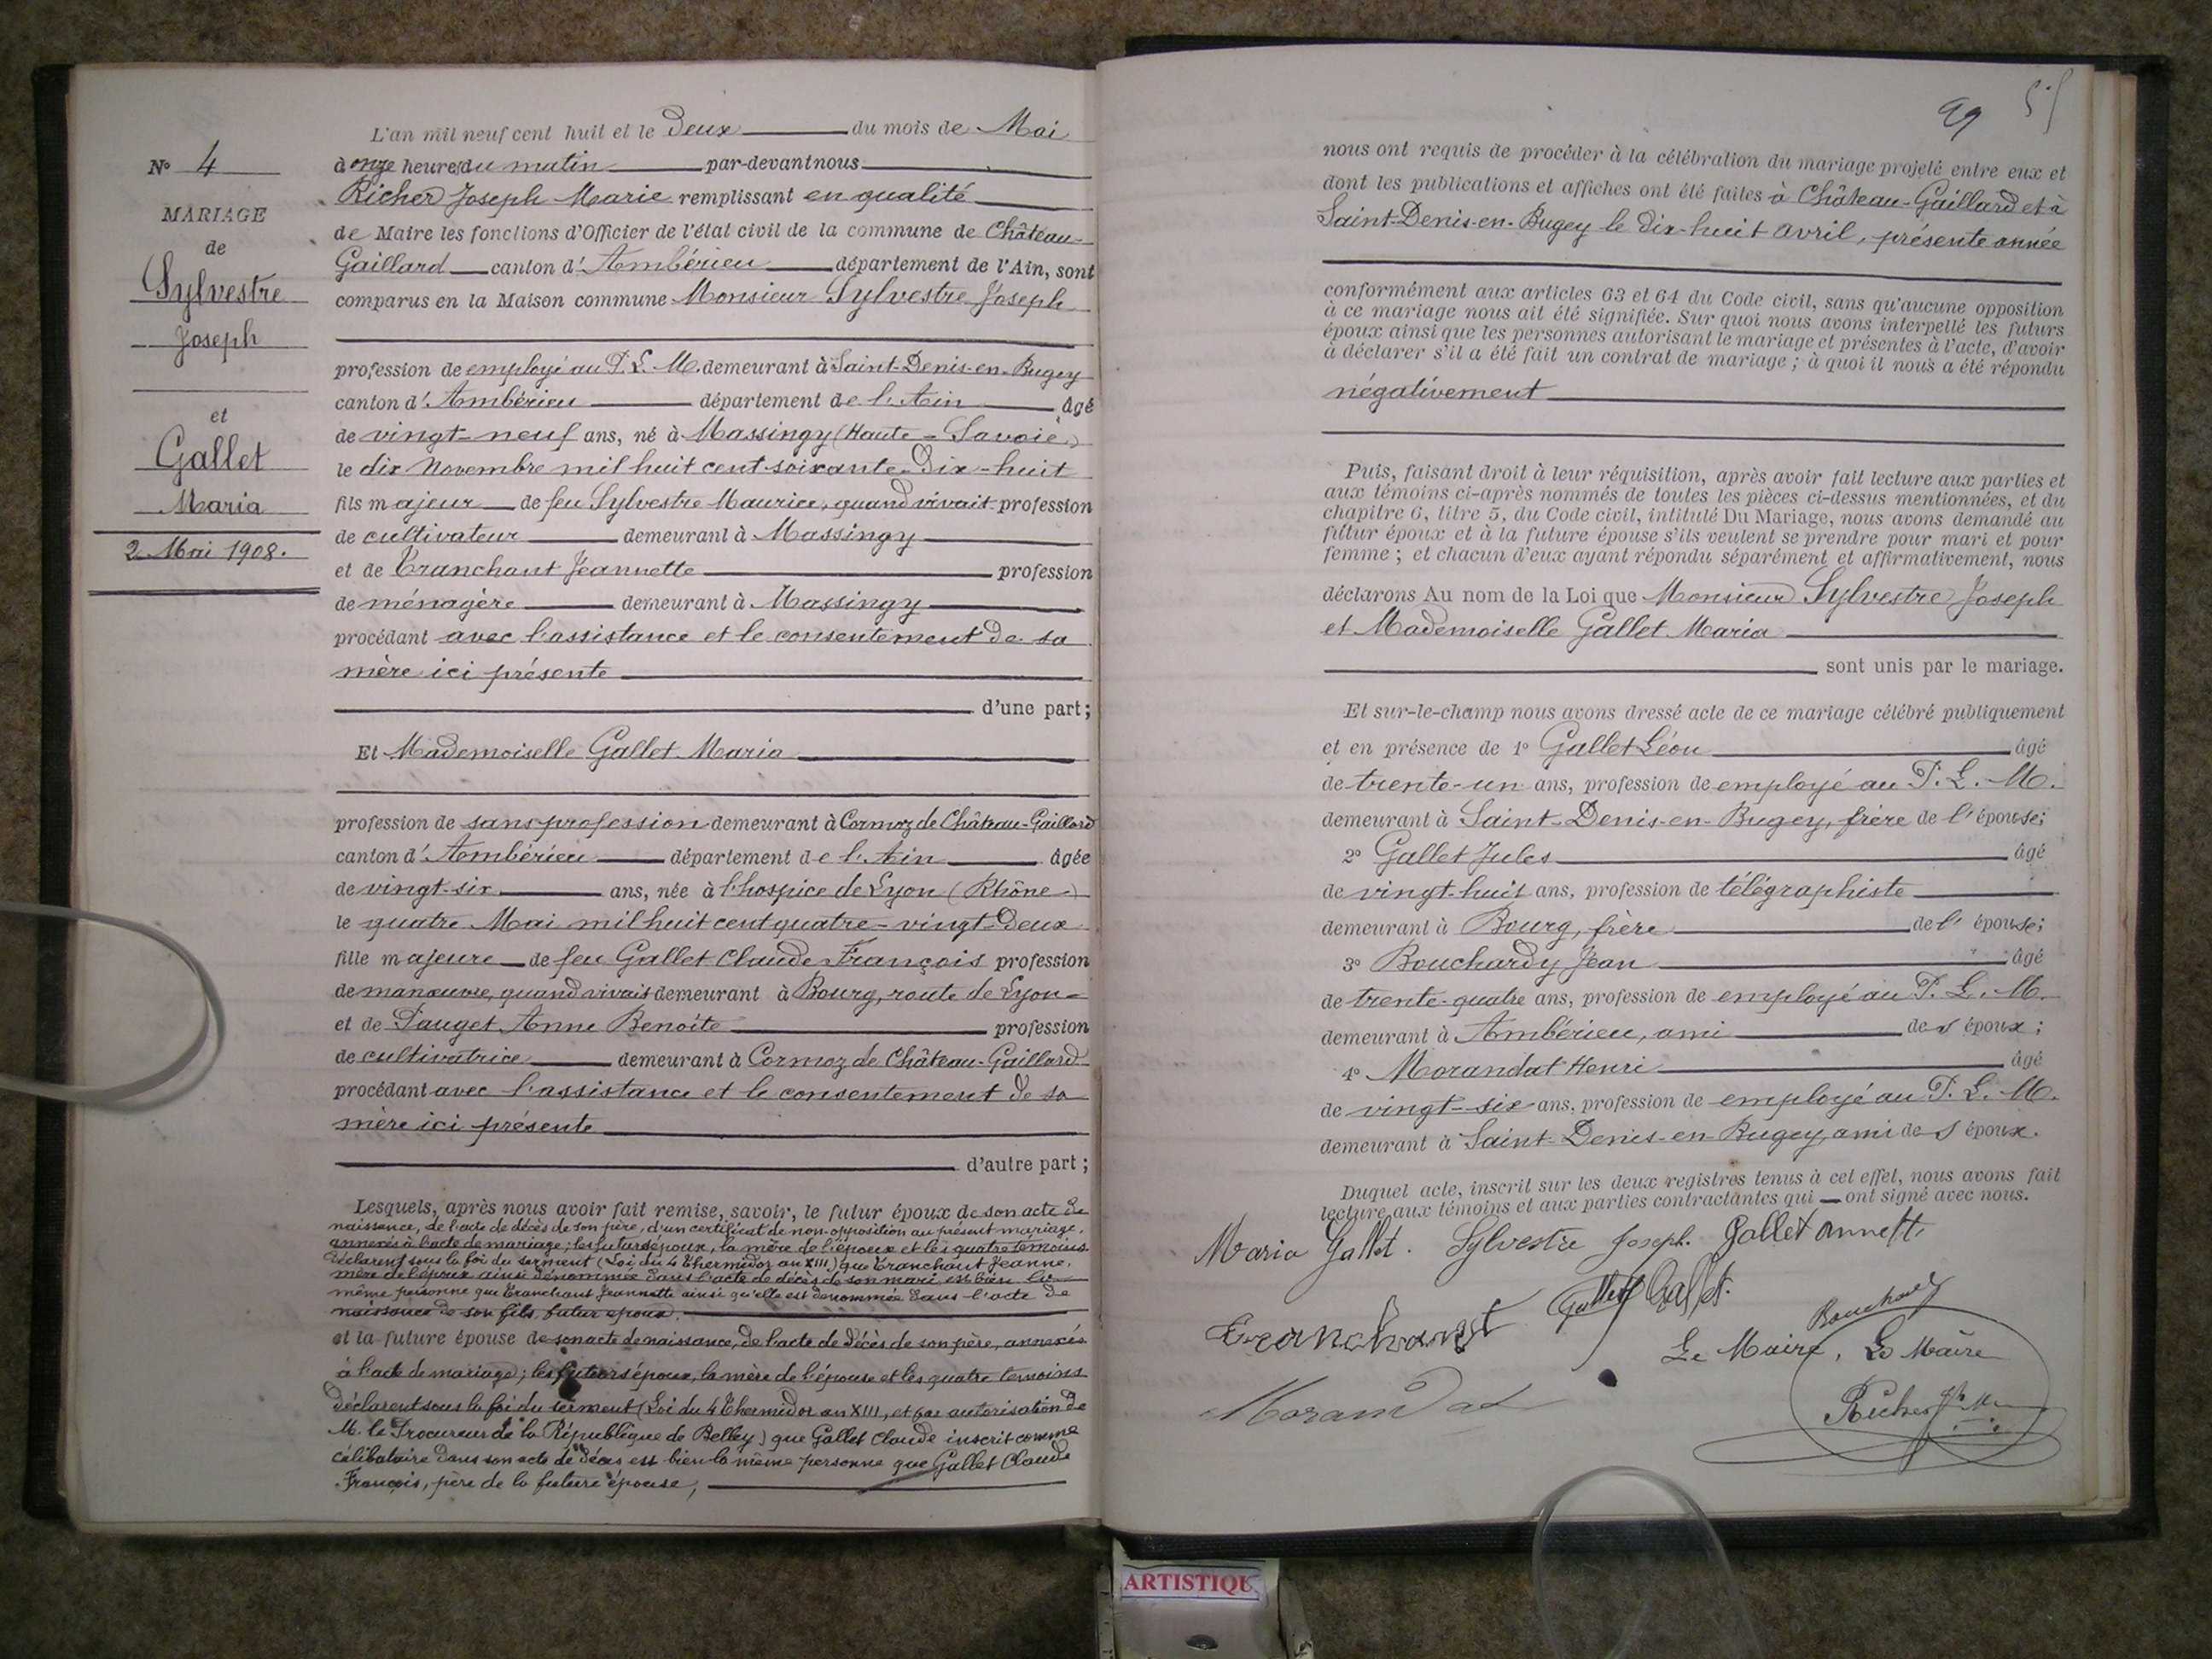 N° 4
MARIAGE
de
Sylvestre
Joseph
et
Gallet
Maria
2 Mai 1908.
L'an mil neuf cent huit et le Deux du mois de Mai
à onze heures du matin par-devant nous
Richer Joseph Marie remplissant en qualité
de Maire les fonctions d'Officier de l'état civil de la commune de Château-
Gaillard canton d'Ambérieu département de l'Ain, sont
comparus en la Maison commune Monsieur Sylvestre Joseph
profession de employé au P. L. M. demeurant à Saint-Denis-en-Bugey
canton d'Ambérieu département de l'Ain âgé
de vingt-neuf ans, né à Massingy (Haute-Savoie)
le dix Novembre mil huit cent soixante-Dix-huit
fils majeur de feu Sylvestre Maurice, quand vivait profession
de cultivateur demeurant à Massingy
et de Tranchant Jeannette profession
de ménagère demeurant à Massingy
procédant avec l'assistance et le consentement de sa
mère ici présente
d'une part ;
Et Mademoiselle Gallet Maria
profession de sans profession demeurant à Cormoz de Château-Gaillard
canton d'Ambérieu département de l'Ain âgée
de vingt-six ans, née à l'hospice de Lyon (Rhône)
le quatre Mai mil huit cent quatre-vingt-Deux
fille majeure de feu Gallet Claude François profession
de manœuvre, quand vivait demeurant à Bourg, route de Lyon
et de Pauget Anne Benoîte profession
de cultivatrice demeurant à Cormoz de Château-Gaillard
procédant avec l'assistance et le consentement de sa
mère ici présente
d'autre part ;
Lesquels, après nous avoir fait remise, savoir, le futur époux de son acte de
naissance, de l'acte de décès de son père, d'un certificat de non-opposition au présent mariage,
annexés à l'acte de mariage ; les futurs époux, la mère de l'époux et les quatre témoins
déclarent sous la foi du serment (Loi du 4 Thermidor an XIII) que Tranchant Jeanne,
mère de l'époux ainsi dénommée dans l'acte de décès de son mari est bien la
même personne que Tranchant Jeannette ainsi qu'elle est dénommée dans l'acte de
naissance de son fils, futur époux.
et la future épouse de son acte de naissance, de l'acte de décès de son père, annexés
à l'acte de mariage ; les futurs époux, la mère de l'épouse et les quatre témoins
déclarent sous la foi du serment (Loi du 4 Thermidor an XIII, et par autorisation de
M. le Procureur de la République de Belley) que Gallet Claude inscrit comme
célibataire dans son acte de décès est bien la même personne que Gallet Claude
François, père de la future épouse,
99
nous ont requis de procéder à la célébration du mariage projeté entre eux et
dont les publications et affiches ont été faites à Château-Gaillard et à
Saint-Denis-en-Bugey le dix-huit avril, présente année
conformément aux articles 63 et 64 du Code civil, sans qu'aucune opposition
à ce mariage nous ait été signifiée. Sur quoi nous avons interpellé les futurs
époux ainsi que les personnes autorisant le mariage et présentes à l'acte, d'avoir
à déclarer s'il a été fait un contrat de mariage ; à quoi il nous a été répondu
négativement
Puis, faisant droit à leur réquisition, après avoir fait lecture aux parties et
aux témoins ci-après nommés de toutes les pièces ci-dessus mentionnées, et du
chapitre 6, titre 5, du Code civil, intitulé Du Mariage, nous avons demandé au
futur époux et à la future épouse s'ils veulent se prendre pour mari et pour
femme ; et chacun d'eux ayant répondu séparément et affirmativement, nous
déclarons Au nom de la Loi que Monsieur Sylvestre Joseph
et Mademoiselle Gallet Maria
sont unis par le mariage.
Et sur-le-champ nous avons dressé acte de ce mariage célébré publiquement
et en présence de 1° Gallet Léon âgé
de trente-un ans, profession de employé au P. L. M.
demeurant à Saint-Denis-en-Bugey, frère de l'épouse;
2° Gallet Jules âgé
de vingt-huit ans, profession de télégraphiste
demeurant à Bourg, frère de l'épouse;
3° Bouchardy Jean âgé
de trente-quatre ans, profession de employé au P. L. M.
demeurant à Ambérieu, ami des époux ;
4° Morandat Henri âgé
de vingt-six ans, profession de employé au P. L. M.
demeurant à Saint-Denis-en-Bugey, ami des époux.
Duquel acte, inscrit sur les deux registres tenus à cet effet, nous avons fait
lecture aux témoins et aux parties contractantes qui ont signé avec nous.
Maria Gallet. Sylvestre Joseph. Gallet Annette
Tranchant Gallet Gallet.
Bouchardy
Le Maire, Le Maire
Morandat Richer Jh M
ARTISTIQU